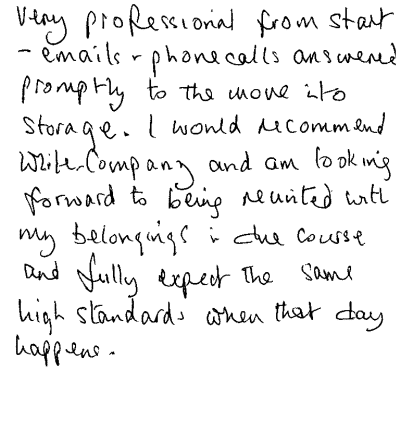 Very professional from start
- emails + phonecalls answered
promptly to the move into
storage. I would recommend
White Company and am looking
forward to being reunited with
my belongings in due course
and fully expect the same
high standards when that day
happens.